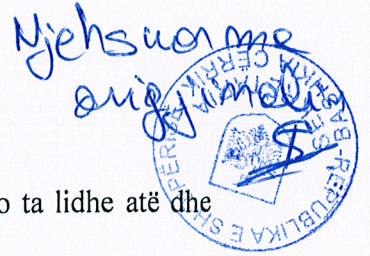 Njehsuar me
origjinalin
REPUBLIKA E SHQIPËRISË
BASHKIA CËRRIK
o ta lidhe atë dhe